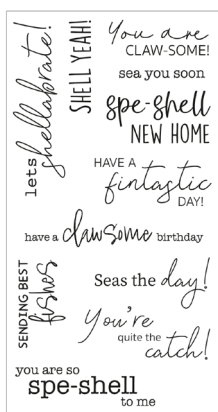 lets
shellabrate!
SHELL YEAH!
You are
CLAW-SOME!
sea you soon
spe-shell
NEW HOME
HAVE A
fintastic
DAY!
have a clawsome birthday
SENDING BEST
fishes
Seas the day!
You're
quite the
catch!
you are so
spe-shell
to me